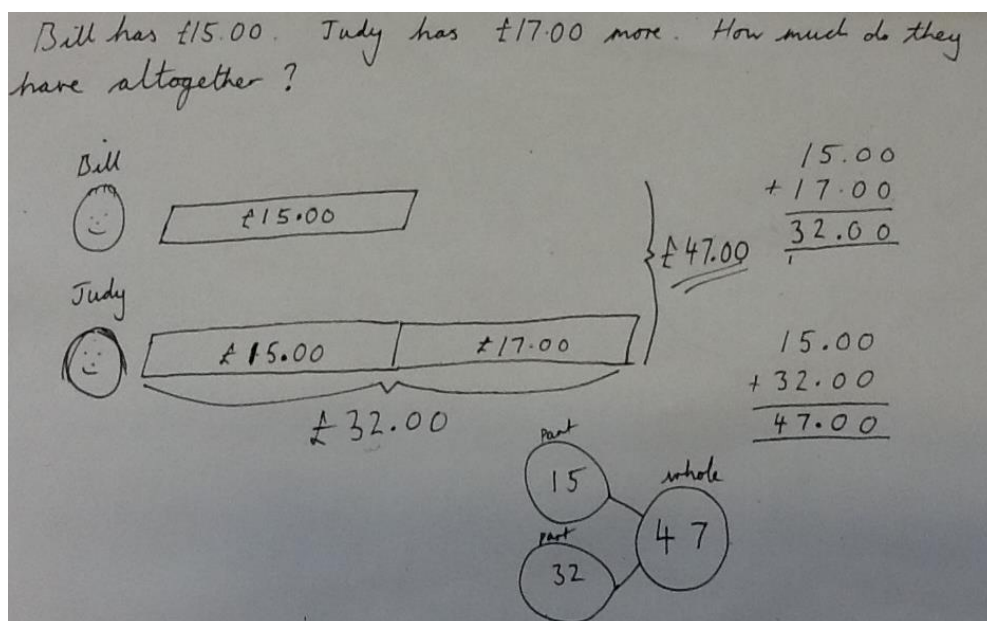 Bill has £15.00. Judy has £17.00 more. How much do they
have altogether?
Bill
£15.00
Judy
£15.00 £17.00
£32.00
£47.00
15.00
+ 17.00
32.00
1
15.00
+ 32.00
47.00
Part
15
part
32
whole
47